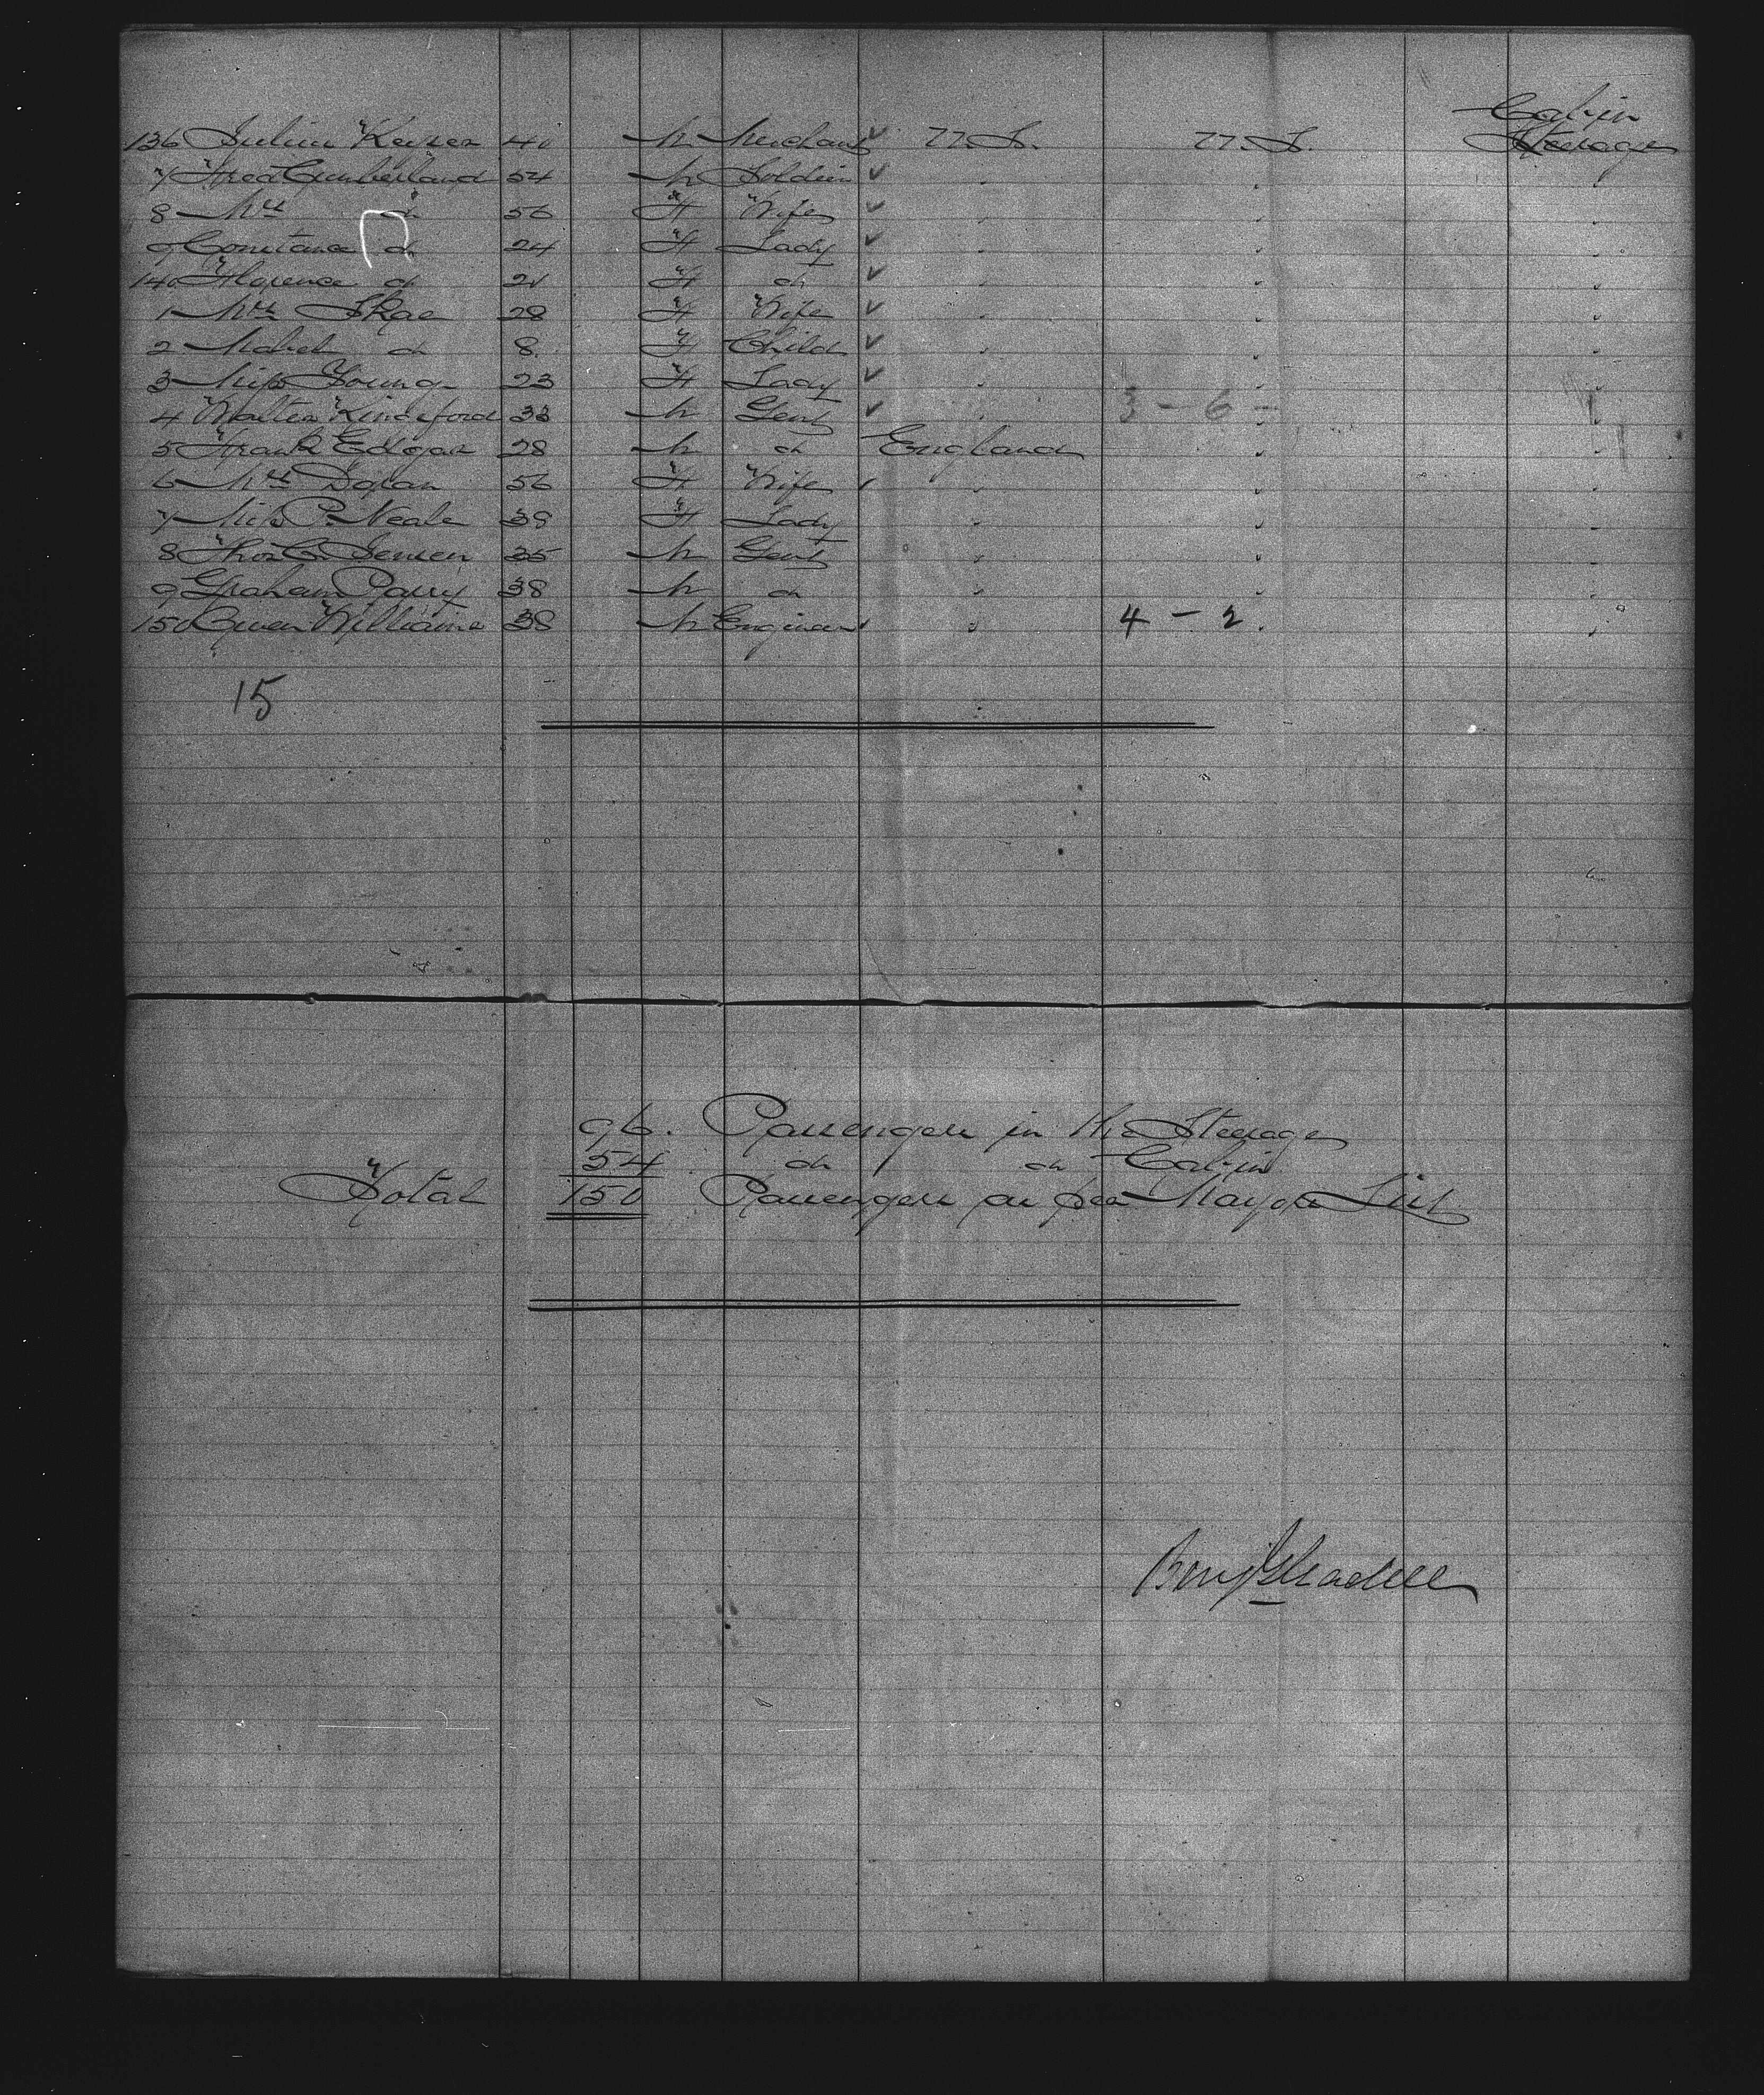 Cabin
136 Julius Keiser 40 M Merchant ✓ U.S. U.S. Steerage
7 Fred Cumberland 54 M Soldier ✓ " " "
8 Mrs do 56 F Wife ✓ " " "
9 Constance do 24 F Lady ✓ " " "
140 Florence do 21 F do ✓ " " "
1 Mrs Skae 28 F Wife ✓ " " "
2 Mabel do 8 F Child ✓ " " "
3 Miss Young 23 F Lady ✓ " " "
4 Walter Kingsford 33 M Gent ✓ " 3 - 6 - "
5 Frank Edgar 28 M do England " "
6 Mrs Dolan 56 F Wife " " "
7 Miss P. Neale 39 F Lady " " "
8 Thos C. Jensen 35 M Gent " " "
9 Graham Parry 38 M do " " "
150 Owen Williams 38 M Engineer " 4 - 2 " "
15
96. Passengers in the Steerage
54 do do Cabin
Total 150 Passengers as per Mayors List
Benj Gleadell